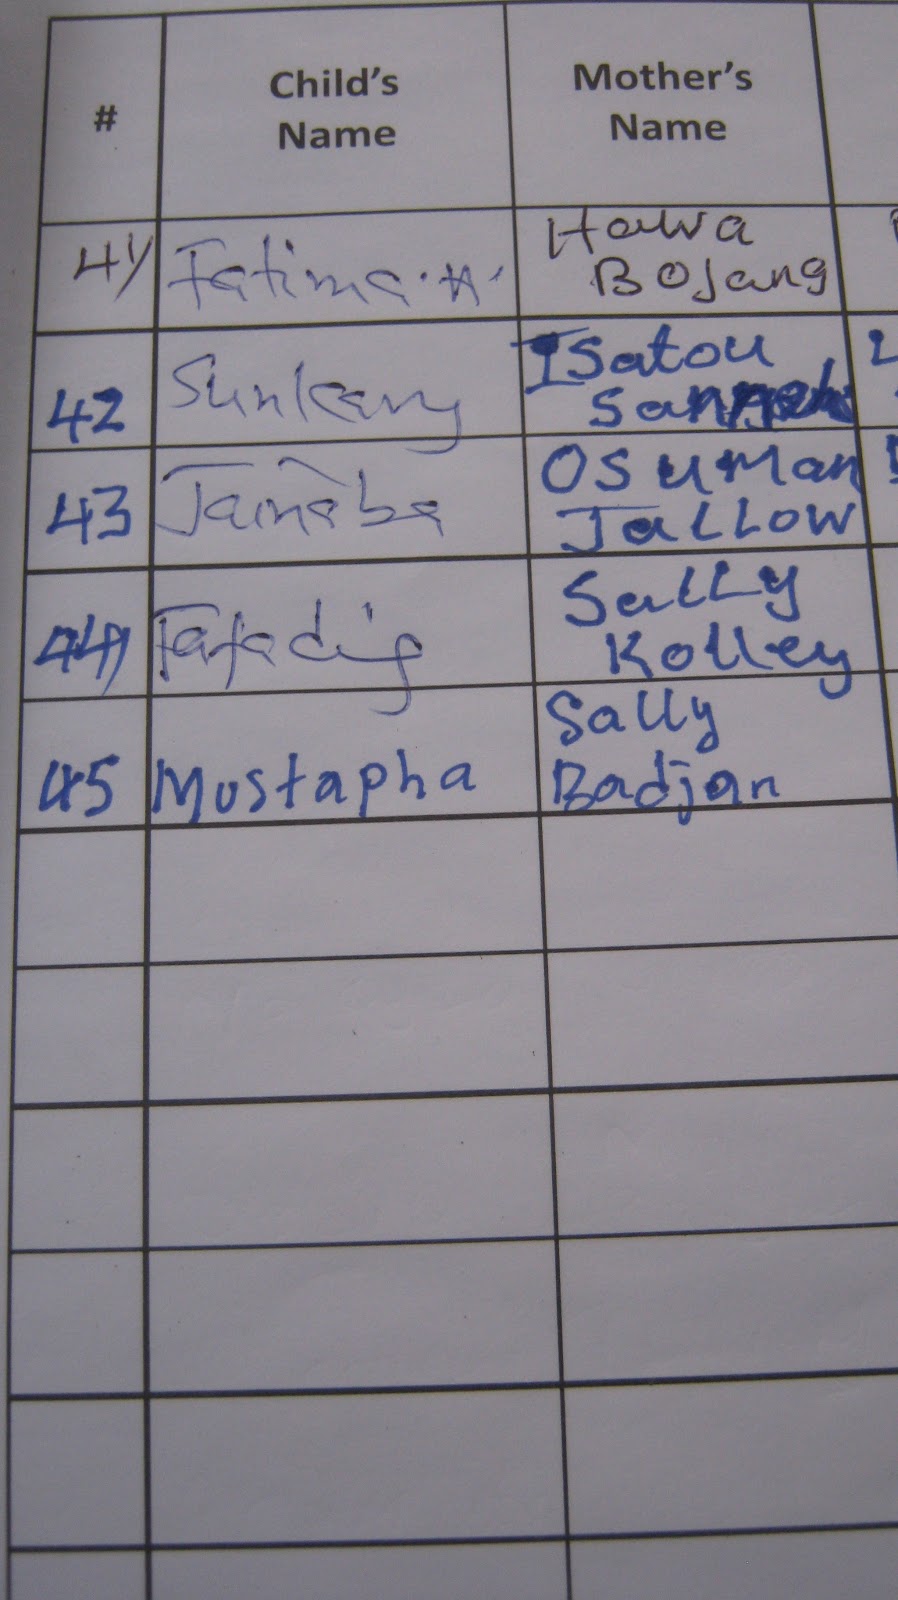 #
Child's
Name
Mother's
Name
41
Fatima
Hawa
Bojang
42
Sunkary
Isatou
43
Jainaba
OSUMan
JaLLOW
44
Fatading
SaLLy
Kolley
45
Mustapha
Sally
Badjan